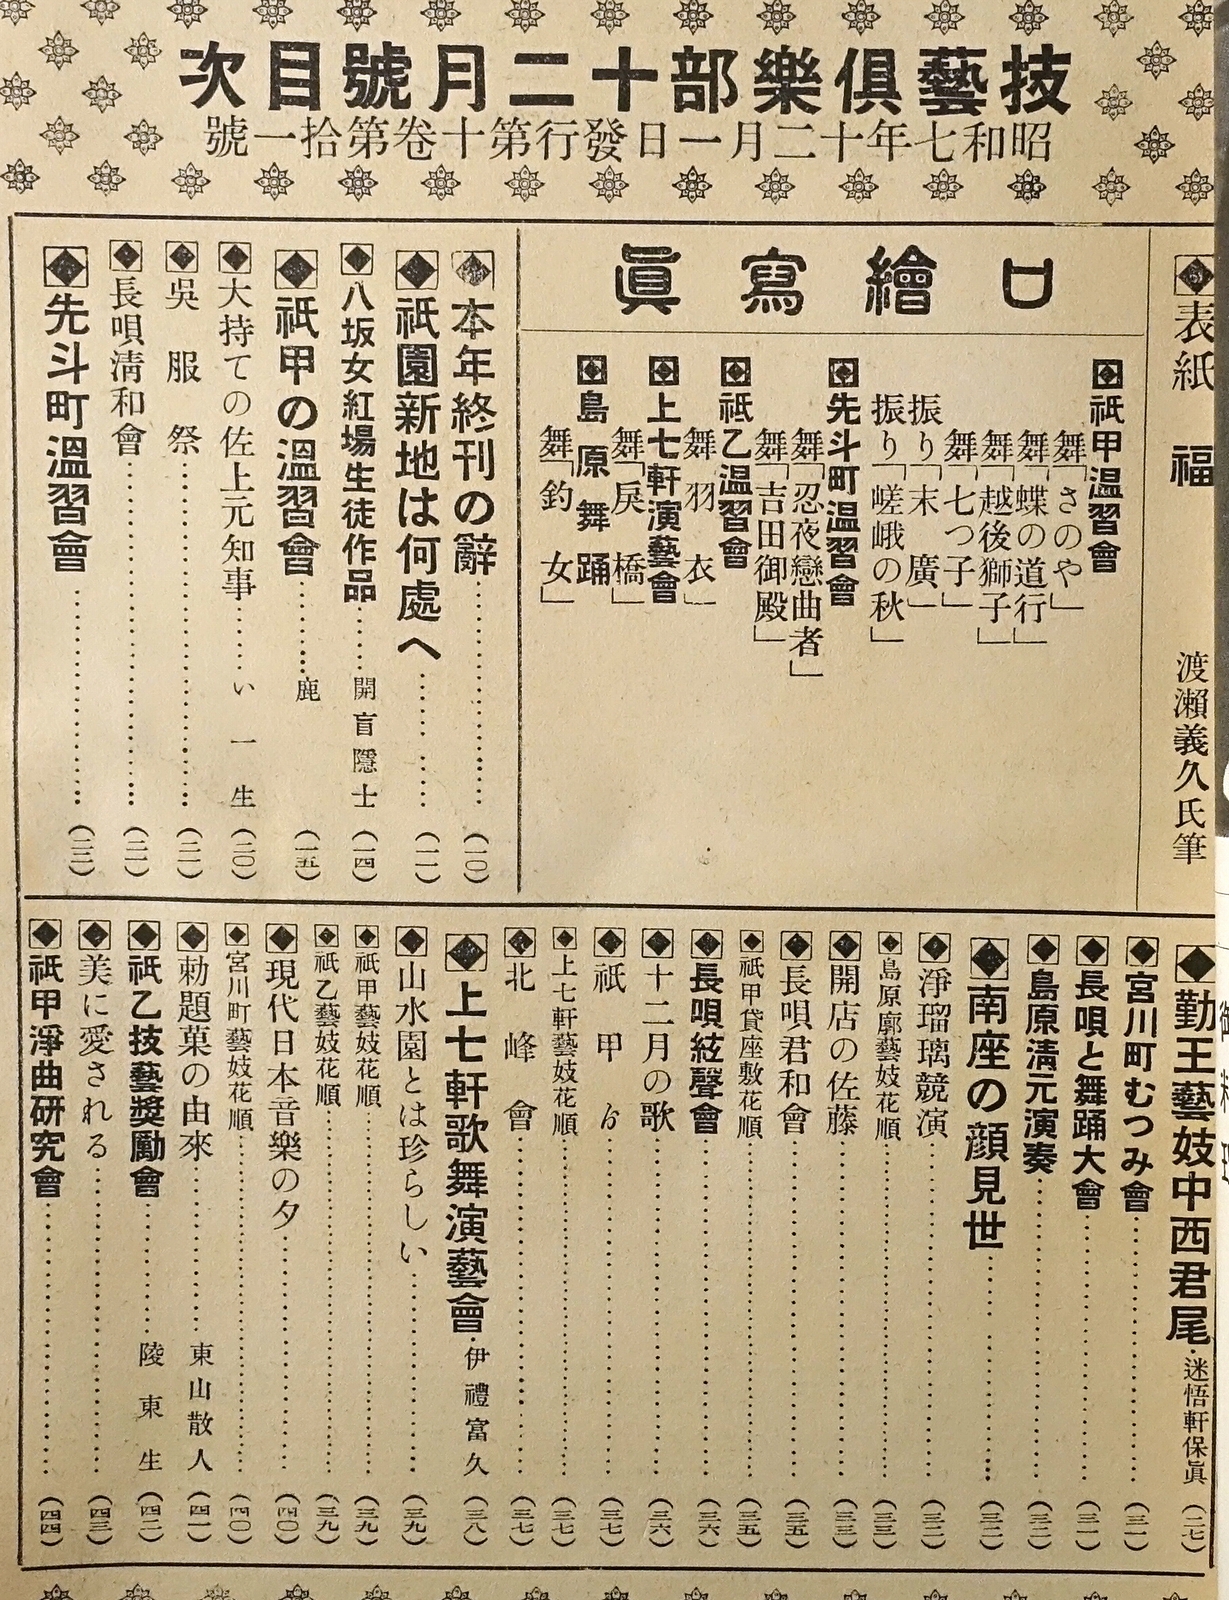 技藝俱樂部十二月號目次
昭和七年十二月一日發行第十卷第拾一號
表紙 福 渡瀨義久氏筆
口繪寫眞
祇甲溫習會
舞「さのや」
舞「蝶の道行」
舞「越後獅子」
舞「七つ子」
振り「末廣」
振り「嵯峨の秋」
先斗町溫習會
舞「忍夜戀曲者」
舞「吉田御殿」
祇乙溫習會
舞「羽衣」
上七軒演藝會
舞「戾橋」
島原舞踊
舞「釣女」
本年終刊の辭……(一〇)
祇園新地は何處へ……(一一)
八坂女紅場生徒作品……開盲隱士(一四)
祇甲の溫習會……鹿(一五)
大持ての佐上元知事……い一生(二〇)
吳服祭……(二一)
長唄淸和會……(二一)
先斗町溫習會……(二二)
勤王藝妓中西君尾 迷悟軒保眞(二七)
宮川町むつみ會……(三一)
長唄と舞踊大會……(三一)
島原淸元演奏……(三二)
南座の顏見世……(三二)
淨瑠璃競演……(三二)
島原廓藝妓花順……(三三)
開店の佐藤……(三三)
長唄君和會……(三五)
祇甲貸座敷花順……(三五)
長唄絃聲會……(三六)
十二月の歌……(三六)
祇甲ゟ……(三七)
上七軒藝妓花順……(三七)
北峰會……(三七)
上七軒歌舞演藝會 伊禮富久(三八)
山水園とは珍らしい……(三九)
祇甲藝妓花順……(三九)
祇乙藝妓花順……(三九)
現代日本音樂の夕……(四〇)
宮川町藝妓花順……(四〇)
勅題菓の由來……東山散人(四一)
祇乙技藝獎勵會……陵東生(四二)
美に愛される……(四三)
祇甲淨曲硏究會……(四四)